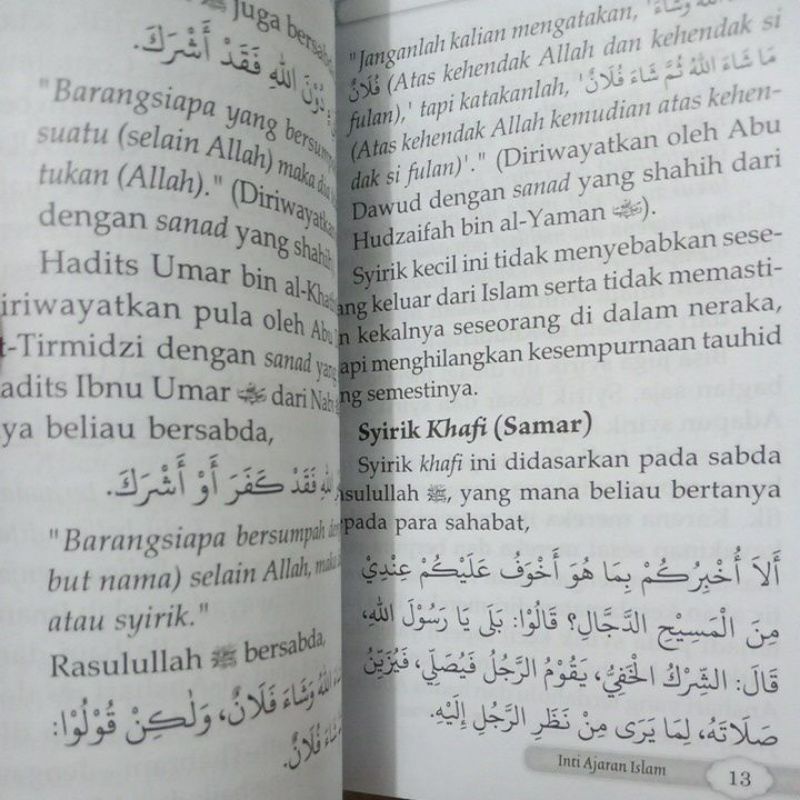 ﷺ juga bersab
دُوْنَ اللهِ فَقَدْ أَشْرَكَ.
"Barangsiapa yang bersum
suatu (selain Allah) maka dia
tukan (Allah)." (Diriwayatkan
dengan sanad yang shahih
Hadits Umar bin al-Khat
iriwayatkan pula oleh Abu
t-Tirmidzi dengan sanad yang
adits Ibnu Umar dari Nab
ya beliau bersabda,
اللهِ فَقَدْ كَفَرَ أَوْ أَشْرَكَ.
"Barangsiapa bersumpah den
but nama) selain Allah, maka
atau syirik."
Rasulullah ﷺ bersabda,
اللهُ وَشَاءَ فَلَانٌ، وَلَكِنْ قُوْلُوْا:
شَاءَ فُلَانٌ.
"Janganlah kalian mengatakan, '
فُلَانٌ (Atas kehendak Allah dan kehendak si
fulan),' tapi katakanlah, 'مَا شَاءَ اللهُ ثُمَّ شَاءَ فُلَانٌ
(Atas kehendak Allah kemudian atas kehen-
dak si fulan)'." (Diriwayatkan oleh Abu
Dawud dengan sanad yang shahih dari
Hudzaifah bin al-Yaman ).
Syirik kecil ini tidak menyebabkan sese-
ang keluar dari Islam serta tidak memasti-
n kekalnya seseorang di dalam neraka,
api menghilangkan kesempurnaan tauhid
ng semestinya.
Syirik Khafi (Samar)
Syirik khafi ini didasarkan pada sabda
asulullah ﷺ, yang mana beliau bertanya
pada para sahabat,
أَلَا أُخْبِرُكُمْ بِمَا هُوَ أَخْوَفُ عَلَيْكُمْ عِنْدِيْ
مِنَ الْمَسِيْحِ الدَّجَّالِ؟ قَالُوْا: بَلَى يَا رَسُوْلَ اللهِ،
قَالَ: الشِّرْكُ الْخَفِيُّ، يَقُوْمُ الرَّجُلُ فَيُصَلِّي، فَيُزَيِّنُ
صَلَاتَهُ، لِمَا يَرَى مِنْ نَظَرِ الرَّجُلِ إِلَيْهِ.
Inti Ajaran Islam 13